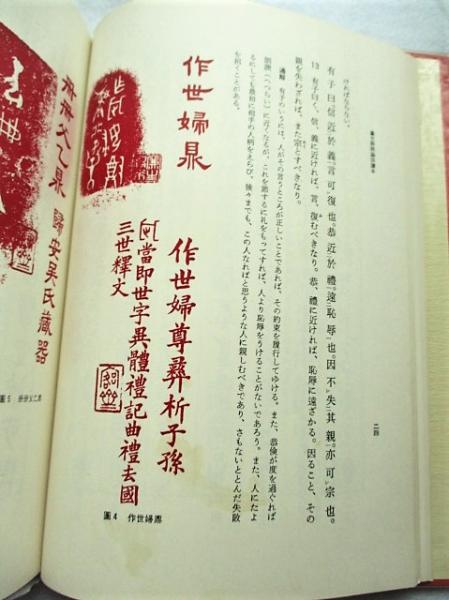 ければならない。
有子曰、信近於義、言可復也。恭近於禮、遠恥辱也。因不失其親、亦可宗也。
13 有子曰く、信、義に近ければ、言、復むべきなり。恭、禮に近ければ、恥辱に遠ざかる。因ること、その
親を失わざれば、また宗とすべきなり。
通解 有子のいうには、人がその言うところが正しいことであれば、その約束を履行してゆける。また、恭倹が度を過ぐれば
諂諛（へつらい）に近くなるが、これを節するに礼をもってすれば、人より恥辱をうけることがないであろう。また、人にたよ
るにしても最初に相手の人柄をえらび、後々までも、この人なればと思うような人に親しむべきであり、さもないととんだ失敗
を招くことがある。
二四
作世婦鼎
作世婦尊彝析子孫
當即世字異體禮記曲禮去國
三世釋文
圖4 作世婦鼎
父乙鼎 歸安吳氏藏器
圖5